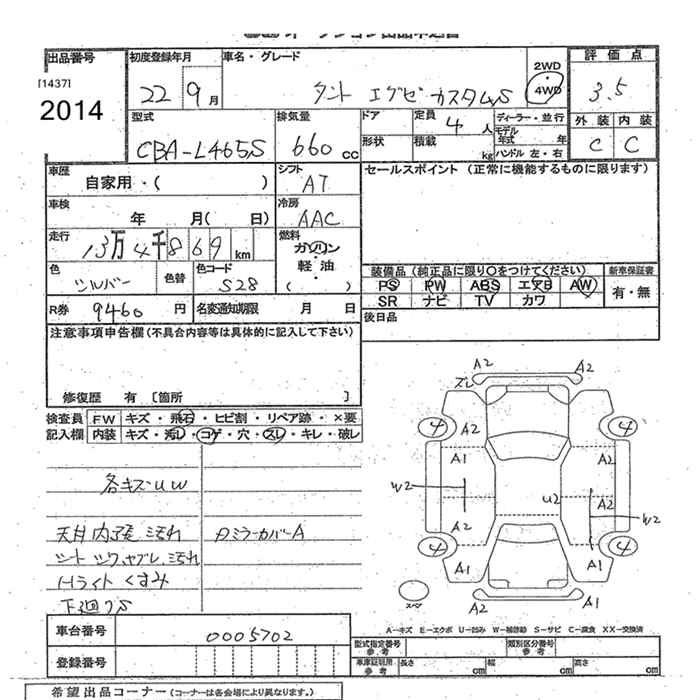 出品番号 初度登録年月 車名・グレード 2WD・4WD 評価点
[1437]
2014 22 9月 タント エグゼ カスタムS 3.5
型式 排気量 ドア 定員 4人 ディーラー・並行 外装 内装
CBA-L465S 660cc 形状 積載 kg モデル年式 年 ハンドル 左・右 C C
車歴 シフト セールスポイント (正常に機能するものに限ります)
自家用・( ) AT
車検 冷房
年 月( 日) AAC
走行 燃料
13万4千869km ガソリン・軽油・( )
色 色替 色コード 装備品 (純正品に限り○をつけてください) 新車保証書
シルバー S28 PS PW ABS エアB AW 有・無
SR ナビ TV カワ
R券 9460円 名変通知期限 月 日 後日品
注意事項申告欄(不具合内容等は具体的に記入して下さい)
修復歴 有 [箇所 ]
検査員 FW キズ・飛石・ヒビ割・リペア跡・×要
記入欄 内装 キズ・汚レ・コゲ・穴・スレ・キレ・破レ
各キズ・UW
天井内張 ミミ汚れ
Pミラーカバー A
シート シワ、ヤブレ、汚れ
Hライト くすみ
下廻りS
A2 A2
ズレ
4 A2 4
A1 A2
W2 U2 A2 W2
A2
4 A1 4
A1
スペア A2 A1
A-キズ E-エクボ U-凹み W-補修跡 S-サビ C-腐食 XX-交換済
車台番号 0005702
型式指定番号 参考 類別区分番号 参考
登録番号 車庫証明用 参考 長さ cm 幅 cm 高さ cm
希望出品コーナー (コーナーは各会場により異なります。)